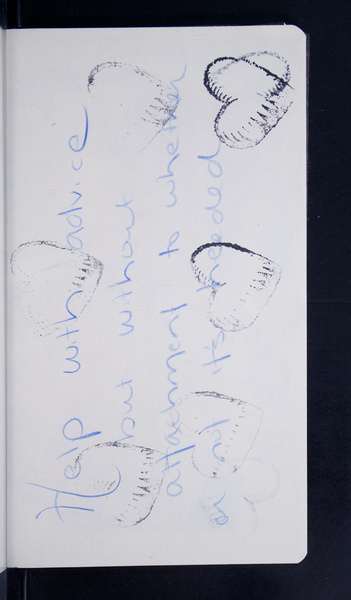 Help with advice
but without
attachment to whether
or not it's needed